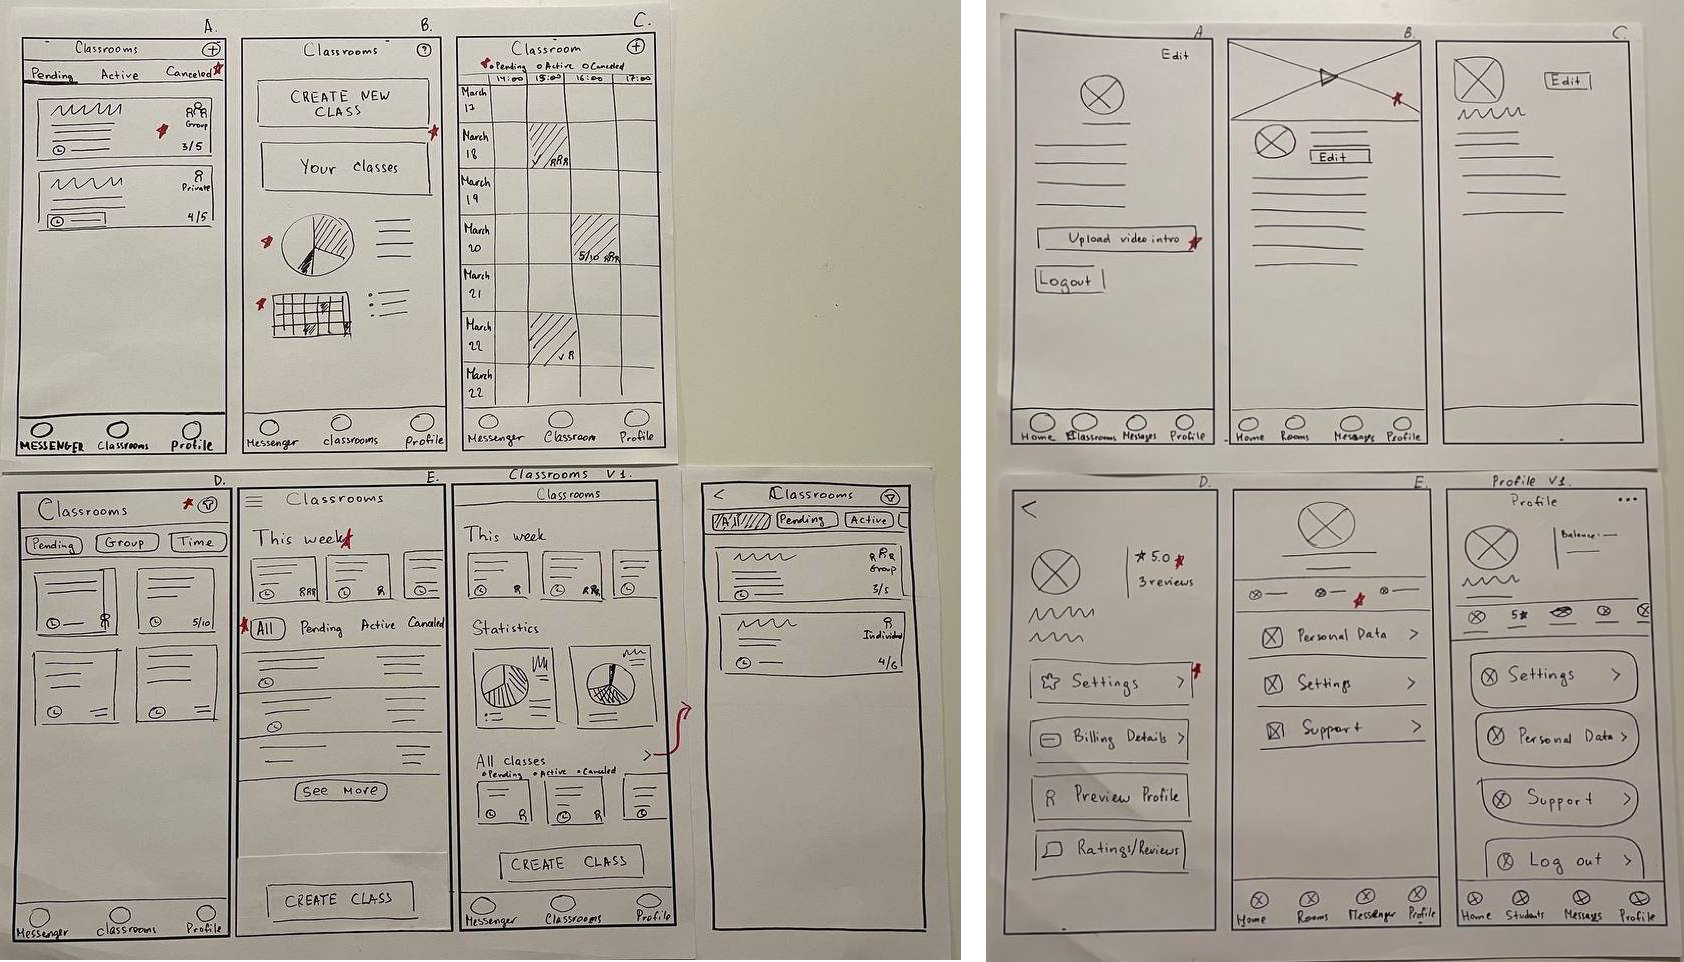 A.
Classrooms
Pending Active Canceled
Group
3/5
Private
4/5
MESSENGER Classrooms Profile
B.
Classrooms ?
CREATE NEW
CLASS
Your classes
Messenger classrooms Profile
C.
Classroom
Pending Active Canceled
14:00 15:00 16:00 17:00
March
17
March
18
March
19
March
20
5/10
March
21
March
22
March
22
Messenger Classroom Profile
D.
Classrooms
Pending Group Time
5/10
Messenger classrooms Profile
E.
Classrooms
This week
All Pending Active Canceled
See More
CREATE CLASS
Classrooms V1.
Classrooms
This week
Statistics
All classes >
Pending Active Canceled
CREATE CLASS
Messenger Classrooms Profile
< Classrooms
All Pending Active
Group
3/5
Individual
4/6
A.
Edit
Upload video intro
Logout
Home Classrooms Messages Profile
B.
Edit
Home Rooms Messages Profile
C.
Edit
D.
<
5.0
3 reviews
Settings >
Billing Details >
Preview Profile
Ratings/Reviews
E.
Personal Data >
Settings >
Support >
Home Rooms Messenger Profile
Profile V1.
Profile ...
Balance:
5
Settings >
Personal Data >
Support >
Log out >
Home Students Messages Profile